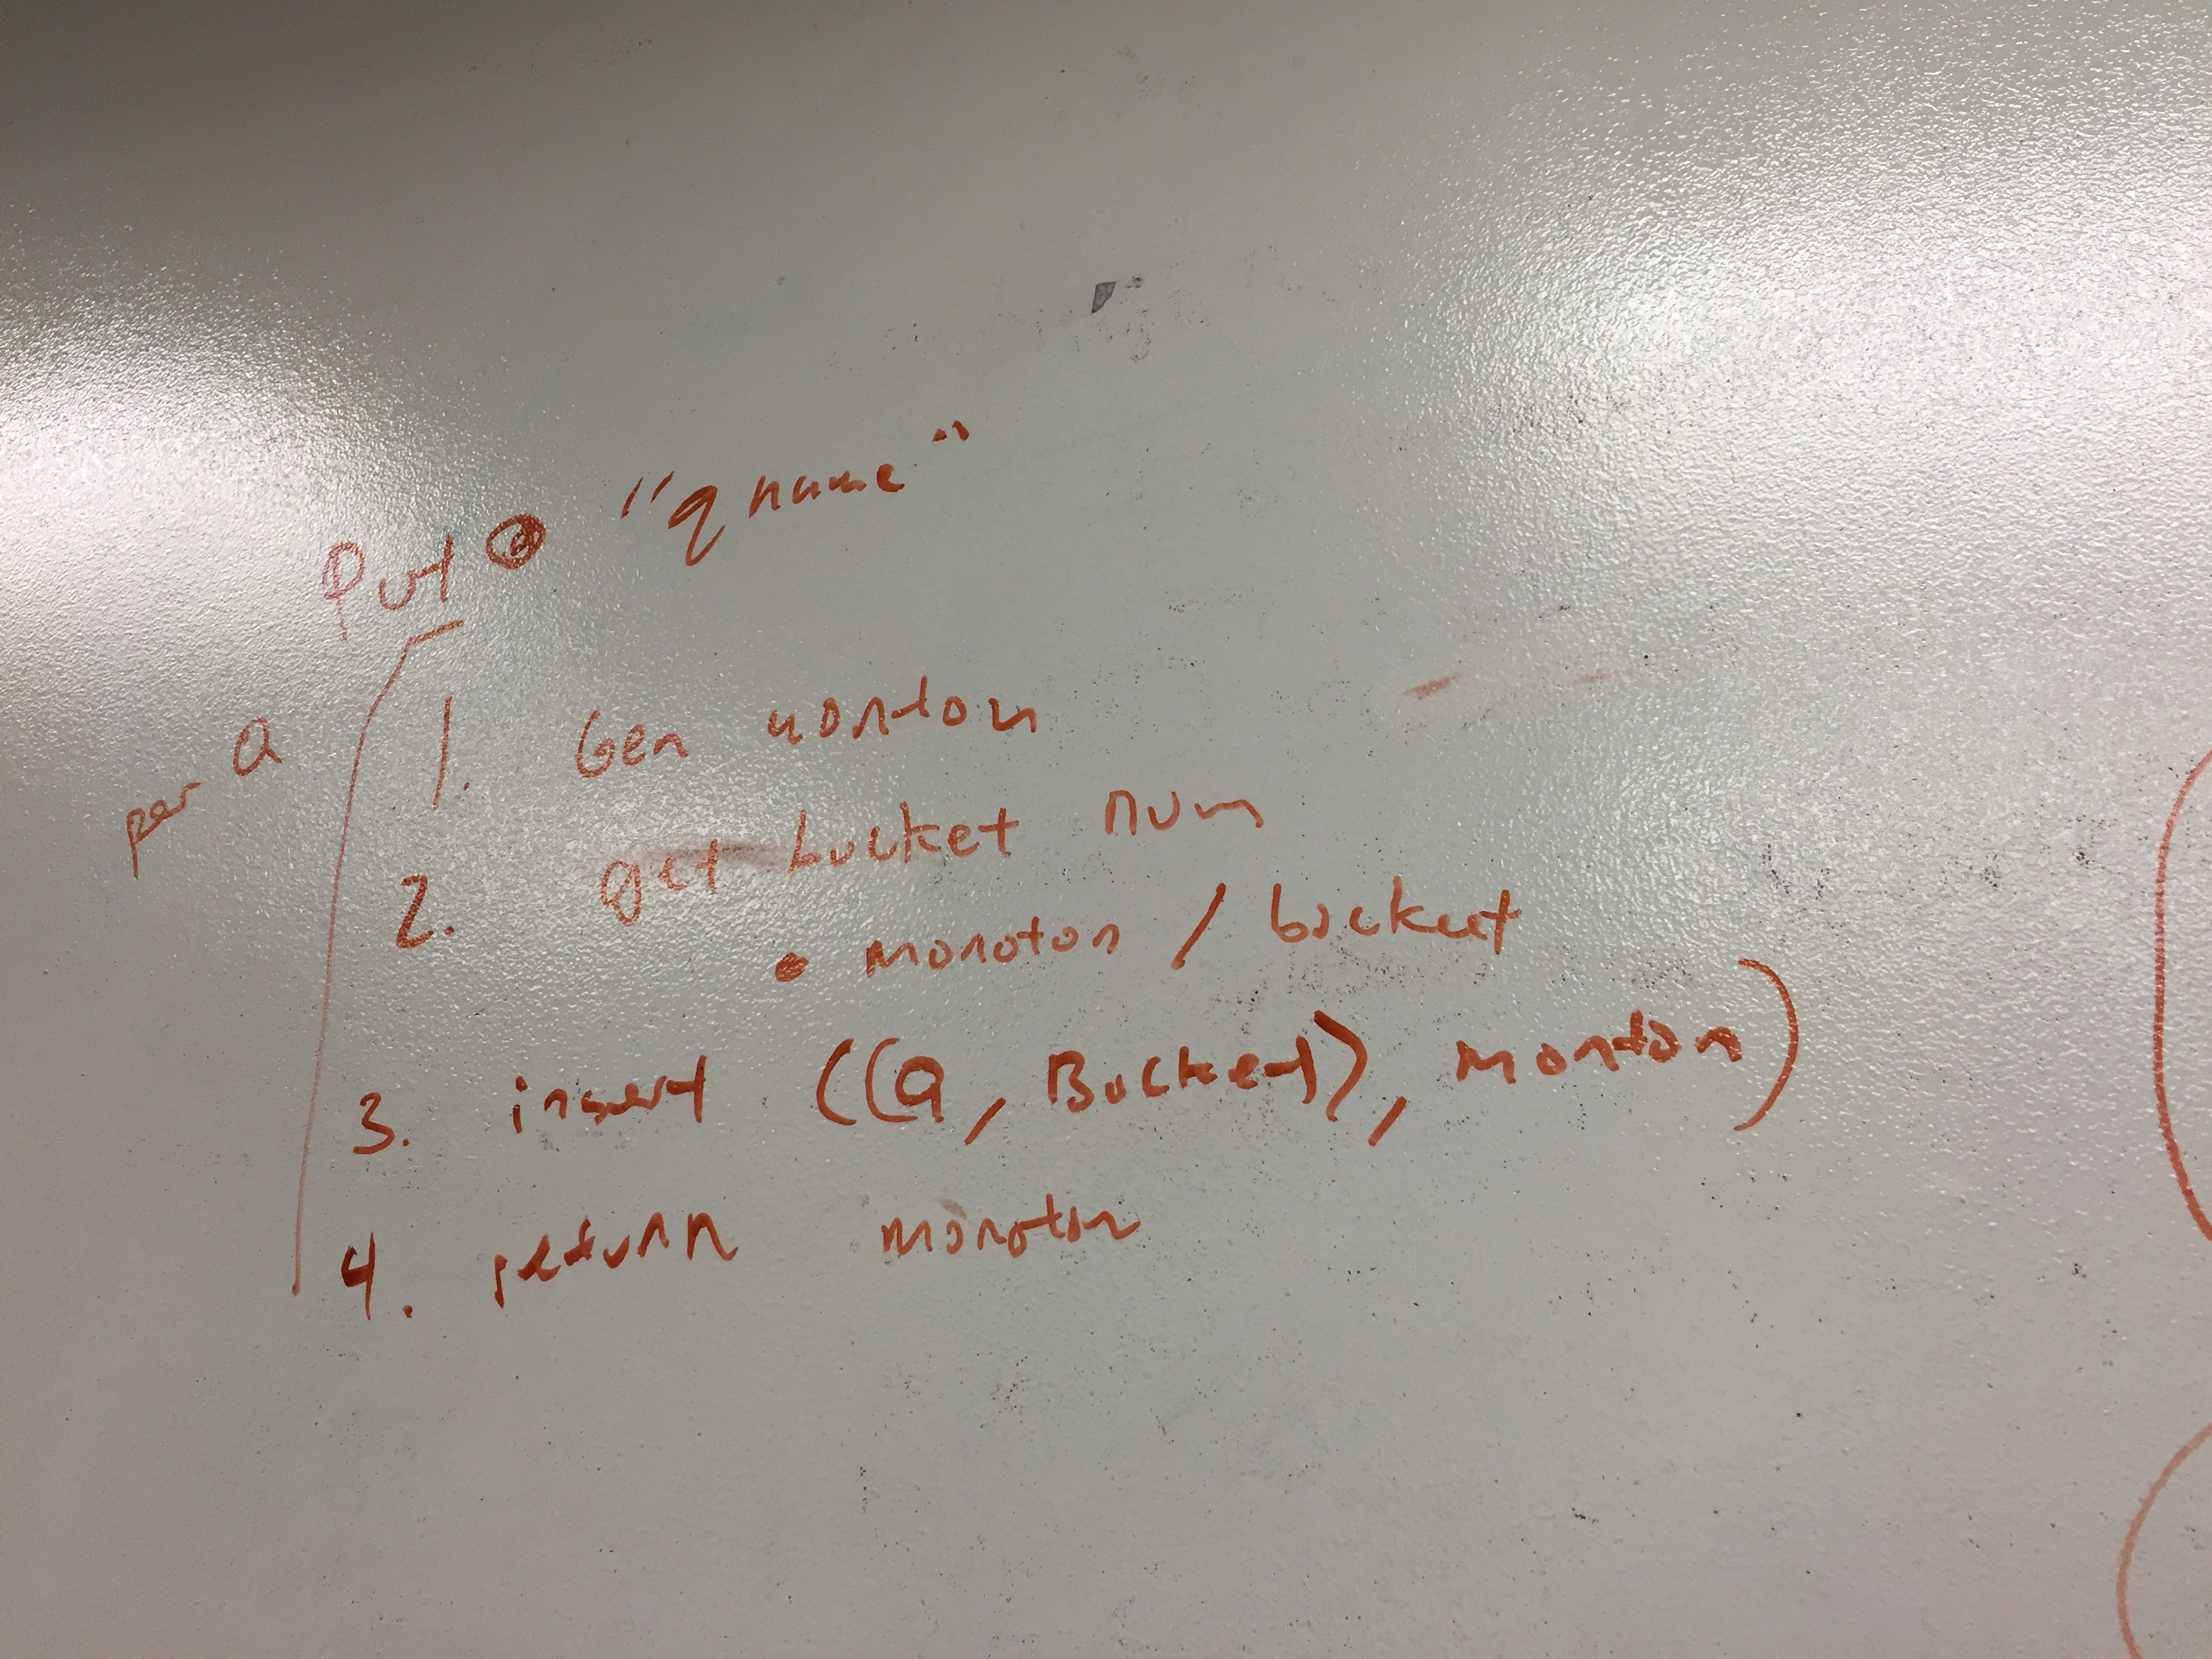 Put @ "qname"
per Q
1. Gen monton
2. get bucket num
• monoton / bucket
3. insert ((Q, Bucket), monton)
4. return monoton